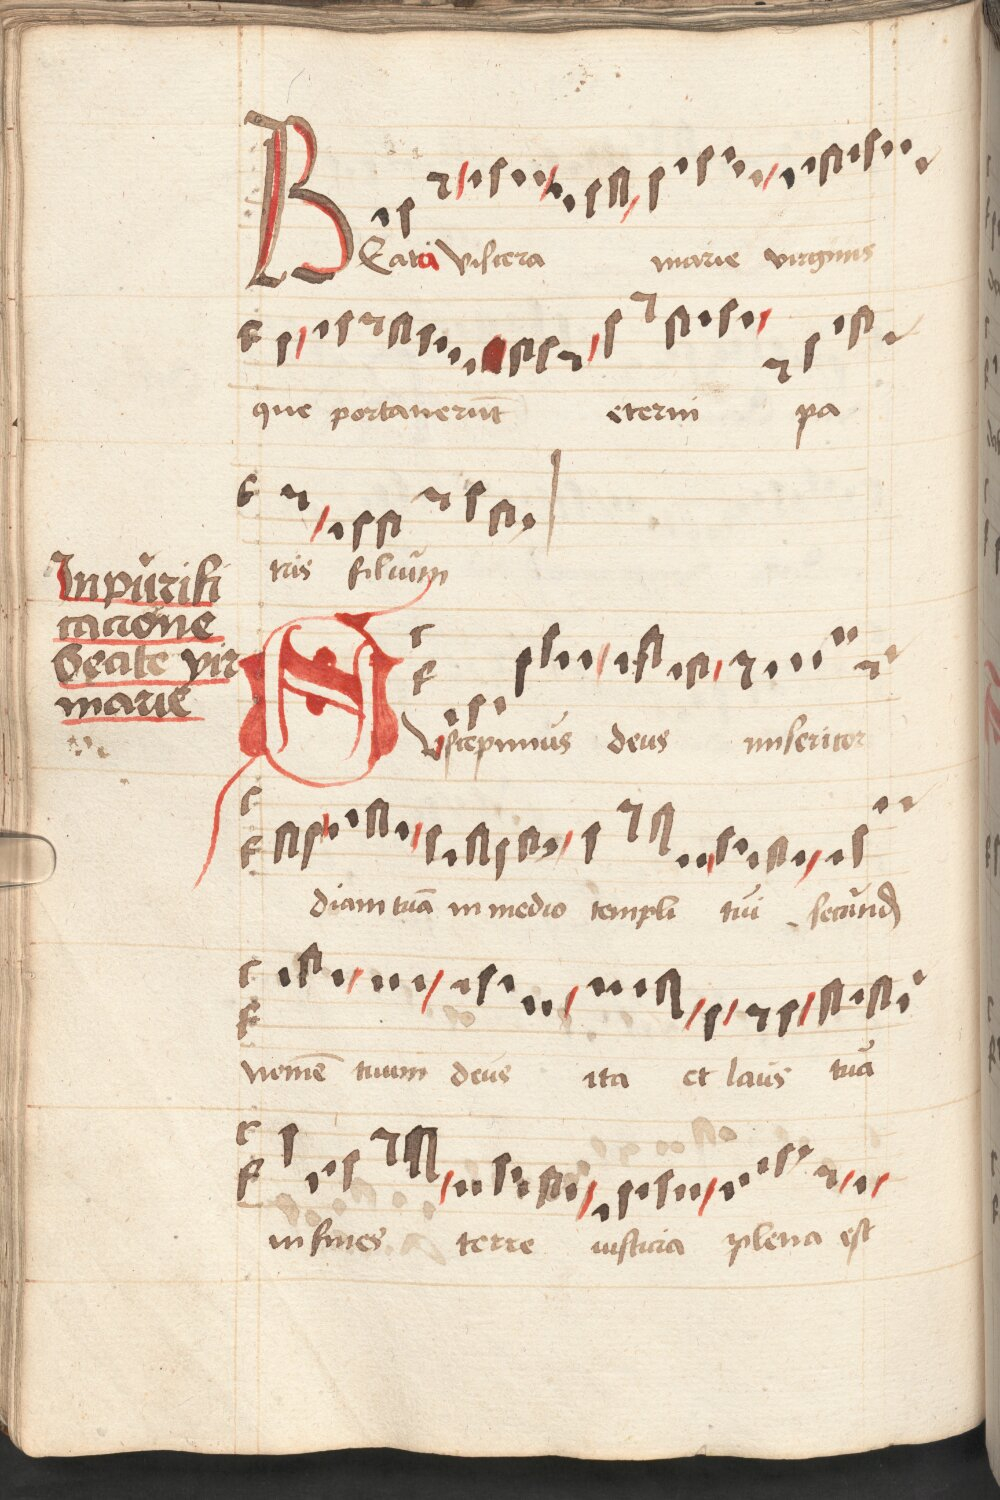 BEata viscera marie virginis
que portauerūt eterni pa
tris filium
In purifi
cacione
beate vir
marie
SVscepimus deus misericor
diam tuā in medio templi tui secund
nomē tuum deus ita et laus tua
in fines terre iusticia plena est